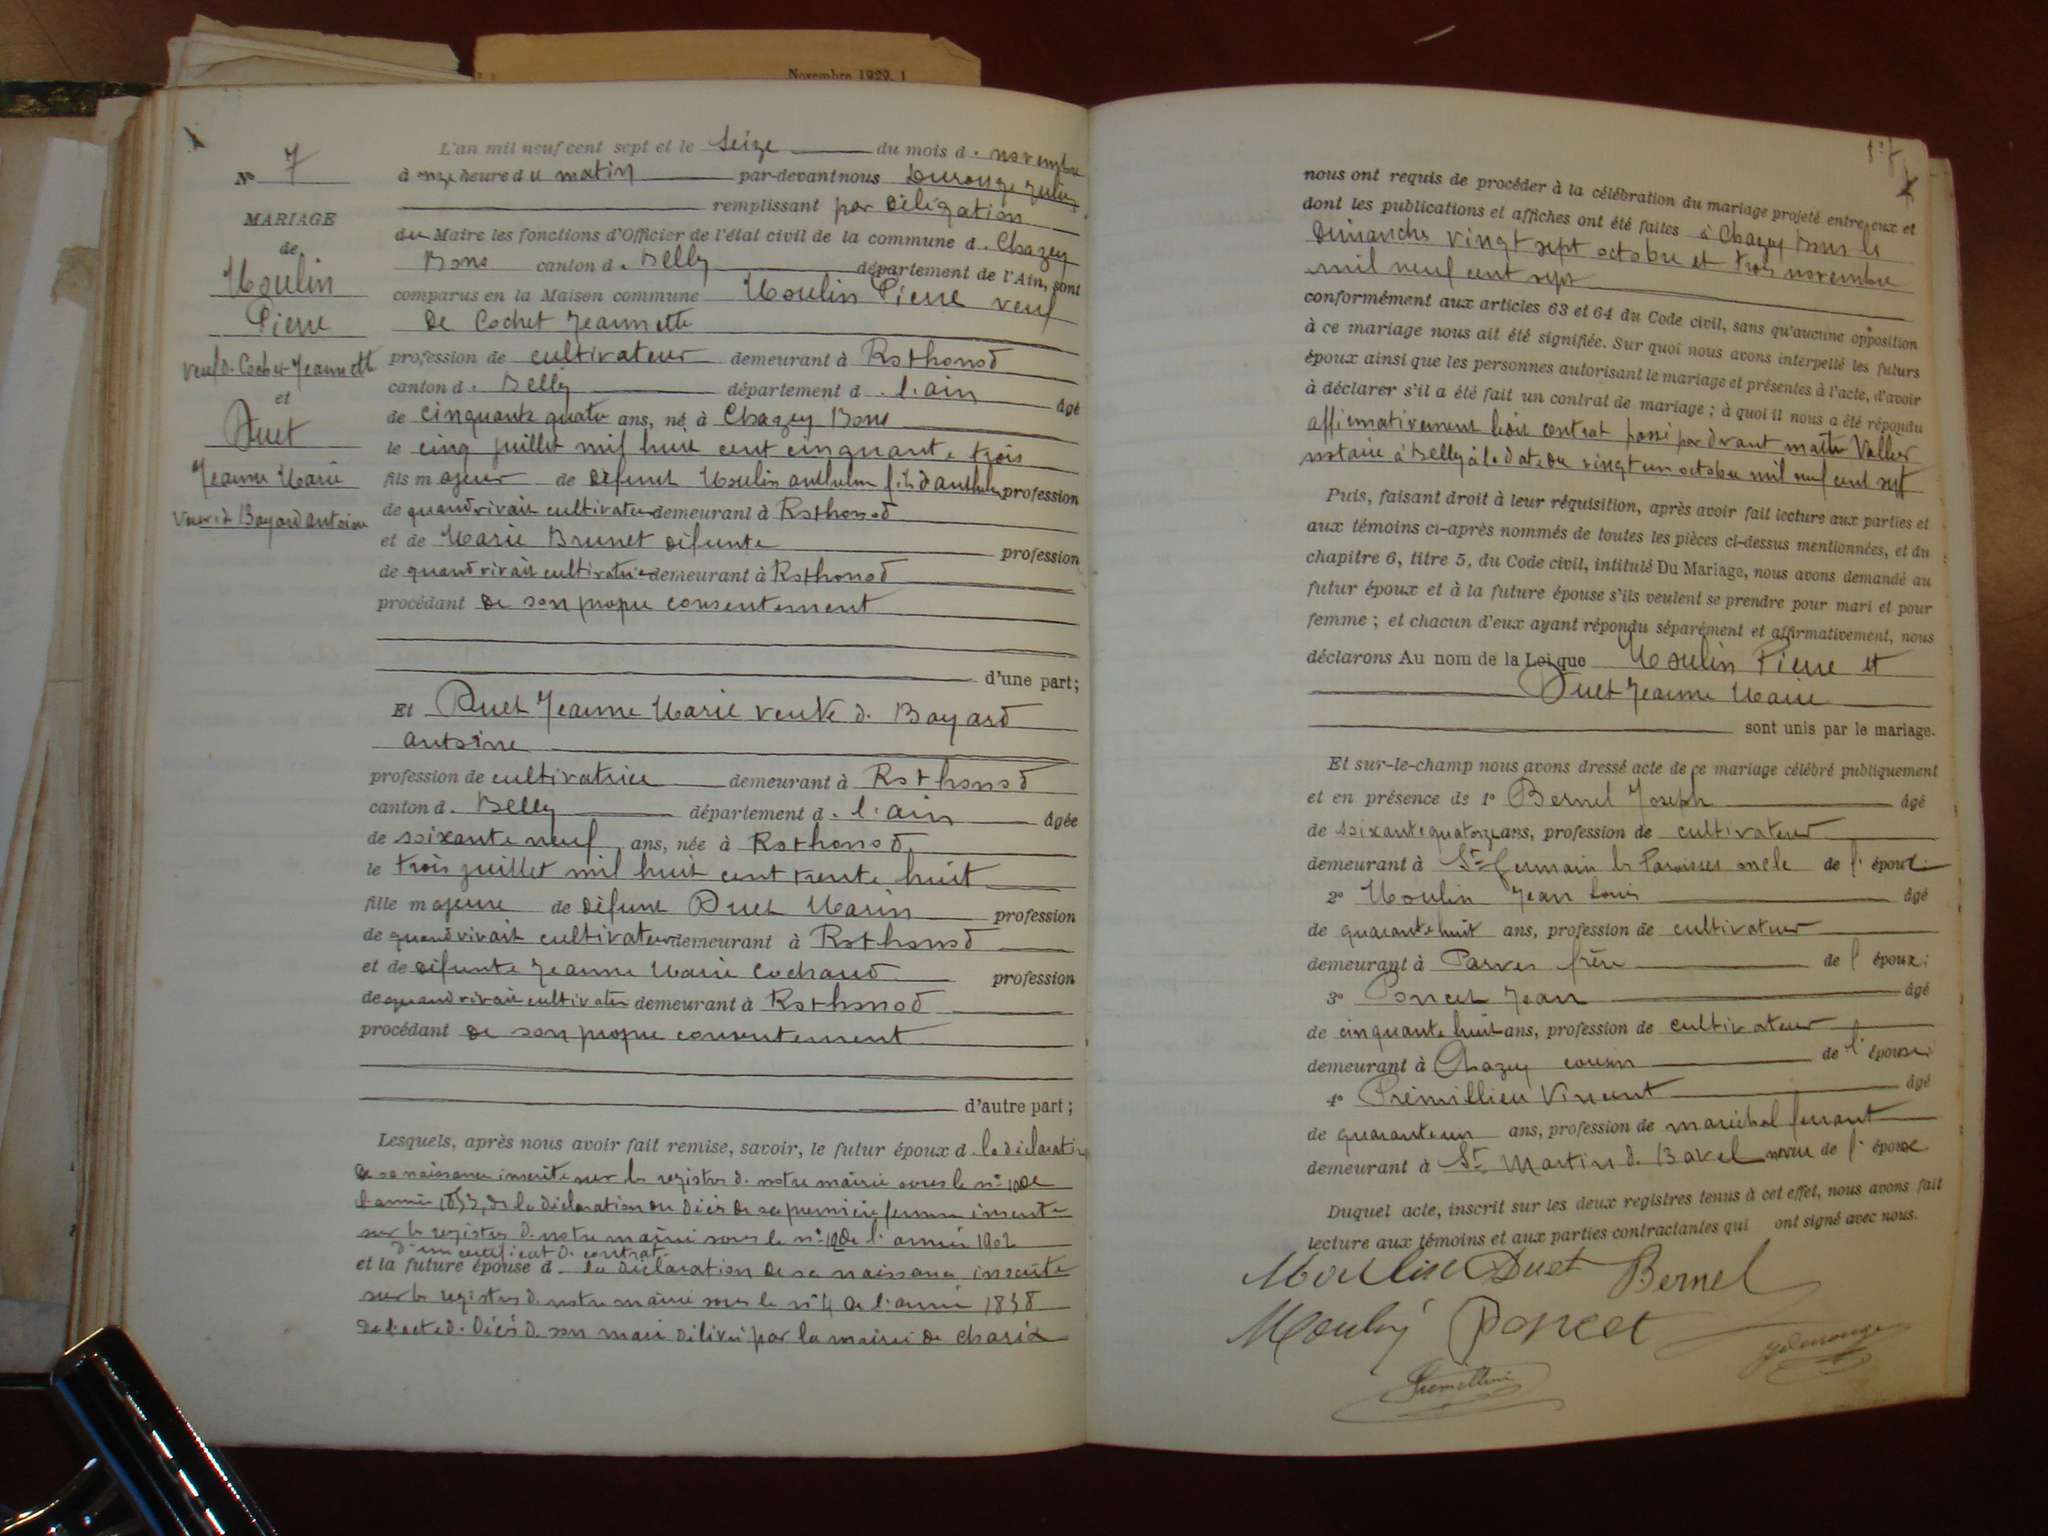 Novembre 1929. 1
N° 7
MARIAGE
de
Moulin
Pierre
veuf d. Cochet Jeannette
et
Duet
Jeanne Marie
veuve d Bayard antoine
L'an mil neuf cent sept et le Seize du mois d. novembre
à onze heure du matin par-devant nous Durouge Julien
remplissant par délégation
du Maire les fonctions d'Officier de l'état civil de la commune d. Chazey
Bons canton d. Belley département de l'Ain, sont
comparus en la Maison commune Moulin Pierre veuf
de Cochet Jeannette
profession de cultivateur demeurant à Rothonod
canton d. Belley département d. l'ain âgé
de cinquante quatre ans, né à Chazey Bons
le cinq juillet mil huit cent cinquante trois
fils majeur de défunt Moulin anthelme fils d'anthelme profession
de quand vivait cultivateur demeurant à Rothonod
et de Marie Brunet défunte profession
de quand vivait cultivatrice demeurant à Rothonod
procédant de son propre consentement
d'une part;
Et Duet Jeanne Marie veuve d. Bayard
antoine
profession de cultivatrice demeurant à Rothonod
canton d. Belley département d. l'ain âgée
de soixante neuf ans, née à Rothonod
le trois juillet mil huit cent trente huit
fille majeure de défunt Duet Marin profession
de quand vivait cultivateur demeurant à Rothonod
et de défunte Jeanne Marie Cochaud profession
de quand vivait cultivatrice demeurant à Rothonod
procédant de son propre consentement
d'autre part;
Lesquels, après nous avoir fait remise, savoir, le futur époux d. la déclaration
de sa naissance inscrite sur les registres d. notre mairie sous le n° 10 de
l'année 1853, de la déclaration du décès de sa première femme inscrite
sur les registres d. notre mairie sous le n° 12 de l'année 1902
d'un certificat d. contrat
et la future épouse d. la déclaration de sa naissance inscrite
sur les registres d. notre mairie sous le n° 4 de l'année 1838
de l'acte d. décès d. son mari délivré par la mairie de Charix
nous ont requis de procéder à la célébration du mariage projeté entre eux et
dont les publications et affiches ont été faites à Chazey Bons les
dimanche vingt sept octobre et trois novembre
mil neuf cent sept
conformément aux articles 63 et 64 du Code civil, sans qu'aucune opposition
à ce mariage nous ait été signifiée. Sur quoi nous avons interpellé les futurs
époux ainsi que les personnes autorisant le mariage et présentes à l'acte, d'avoir
à déclarer s'il a été fait un contrat de mariage; à quoi il nous a été répondu
affirmativement contrat passé par devant maître Vallier
notaire à Belley à la date du vingt un octobre mil neuf cent sept
Puis, faisant droit à leur réquisition, après avoir fait lecture aux parties et
aux témoins ci-après nommés de toutes les pièces ci-dessus mentionnées, et du
chapitre 6, titre 5, du Code civil, intitulé Du Mariage, nous avons demandé au
futur époux et à la future épouse s'ils veulent se prendre pour mari et pour
femme; et chacun d'eux ayant répondu séparément et affirmativement, nous
déclarons Au nom de la Loi que Moulin Pierre et
Duet Jeanne Marie
sont unis par le mariage.
Et sur-le-champ nous avons dressé acte de ce mariage célébré publiquement
et en présence de 1° Bernel Joseph âgé
de soixante quatorze ans, profession de cultivateur
demeurant à St Germain les Paroisses oncle de l'époux
2° Moulin Jean Louis âgé
de quarante huit ans, profession de cultivateur
demeurant à Parves frère de l époux;
3° Poncet Jean âgé
de cinquante huit ans, profession de cultivateur
demeurant à Chazey cousin de l' épouse;
4° Prémillieu Vincent âgé
de quarante un ans, profession de maréchal ferrant
demeurant à St Martin d. Bavel neveu de l' épouse
Duquel acte, inscrit sur les deux registres tenus à cet effet, nous avons fait
lecture aux témoins et aux parties contractantes qui ont signé avec nous.
Moulin Duet Bernel
Moulin Poncet
Premillieu Jdurouge